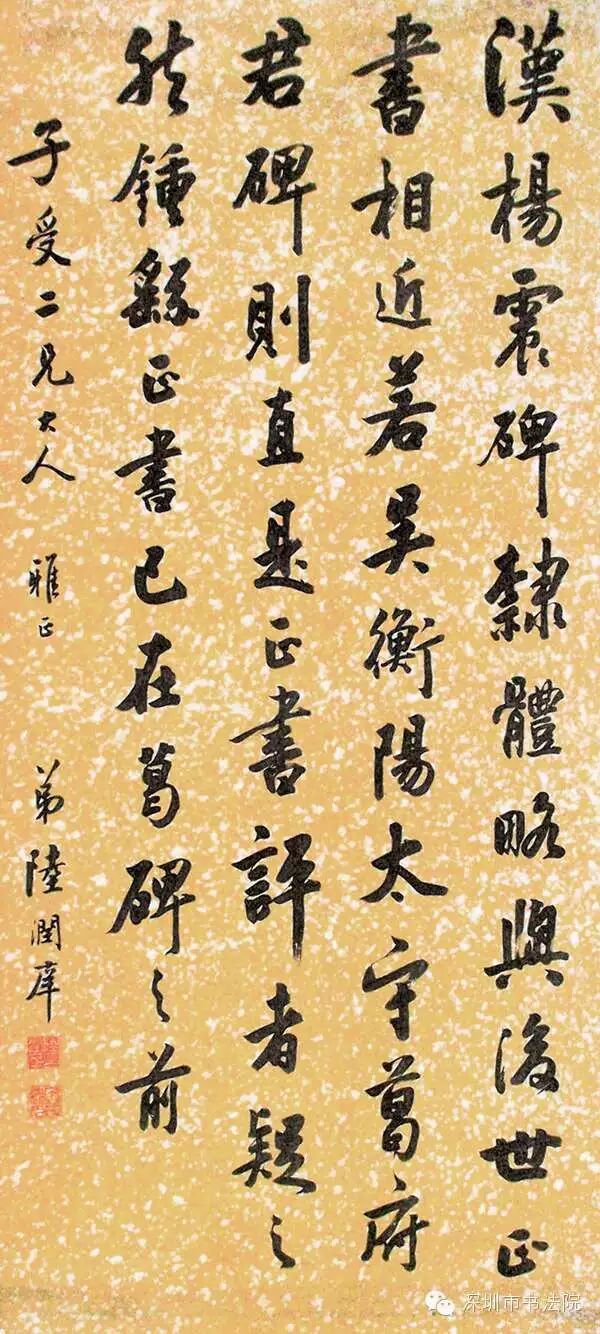 漢楊震碑隸體略與後世正
書相近若吴衡陽太守葛府
君碑則直是正書評者疑之
然鍾繇正書已在葛碑之前
子受二兄大人 雅正 弟陸潤庠
深圳市书法院